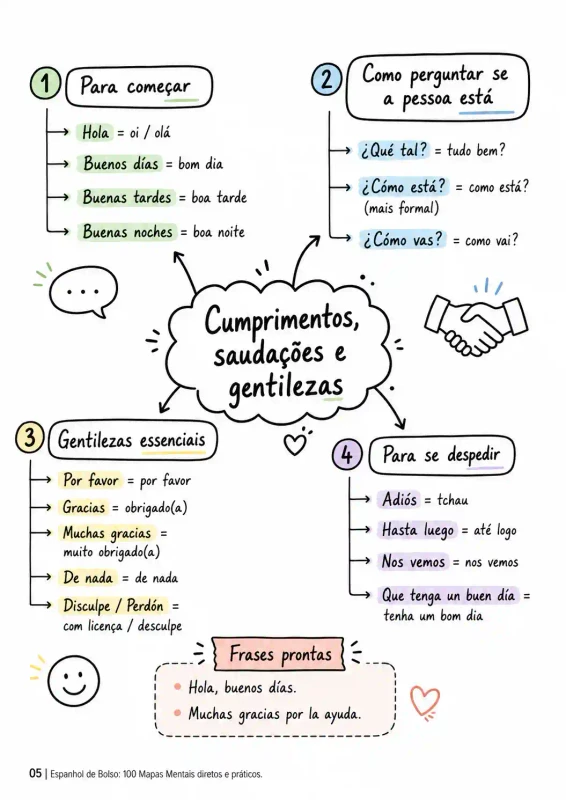 1
Para começar
Hola = oi / olá
Buenos días = bom dia
Buenas tardes = boa tarde
Buenas noches = boa noite
2
Como perguntar se
a pessoa está
¿Qué tal? = tudo bem?
¿Cómo está? = como está?
(mais formal)
¿Cómo vas? = como vai?
Cumprimentos,
saudações e
gentilezas
3
Gentilezas essenciais
Por favor = por favor
Gracias = obrigado(a)
Muchas gracias =
muito obrigado(a)
De nada = de nada
Disculpe / Perdón =
com licença / desculpe
4
Para se despedir
Adiós = tchau
Hasta luego = até logo
Nos vemos = nos vemos
Que tenga un buen día =
tenha um bom dia
Frases prontas
• Hola, buenos días.
• Muchas gracias por la ayuda.
05 | Espanhol de Bolso: 100 Mapas Mentais diretos e práticos.